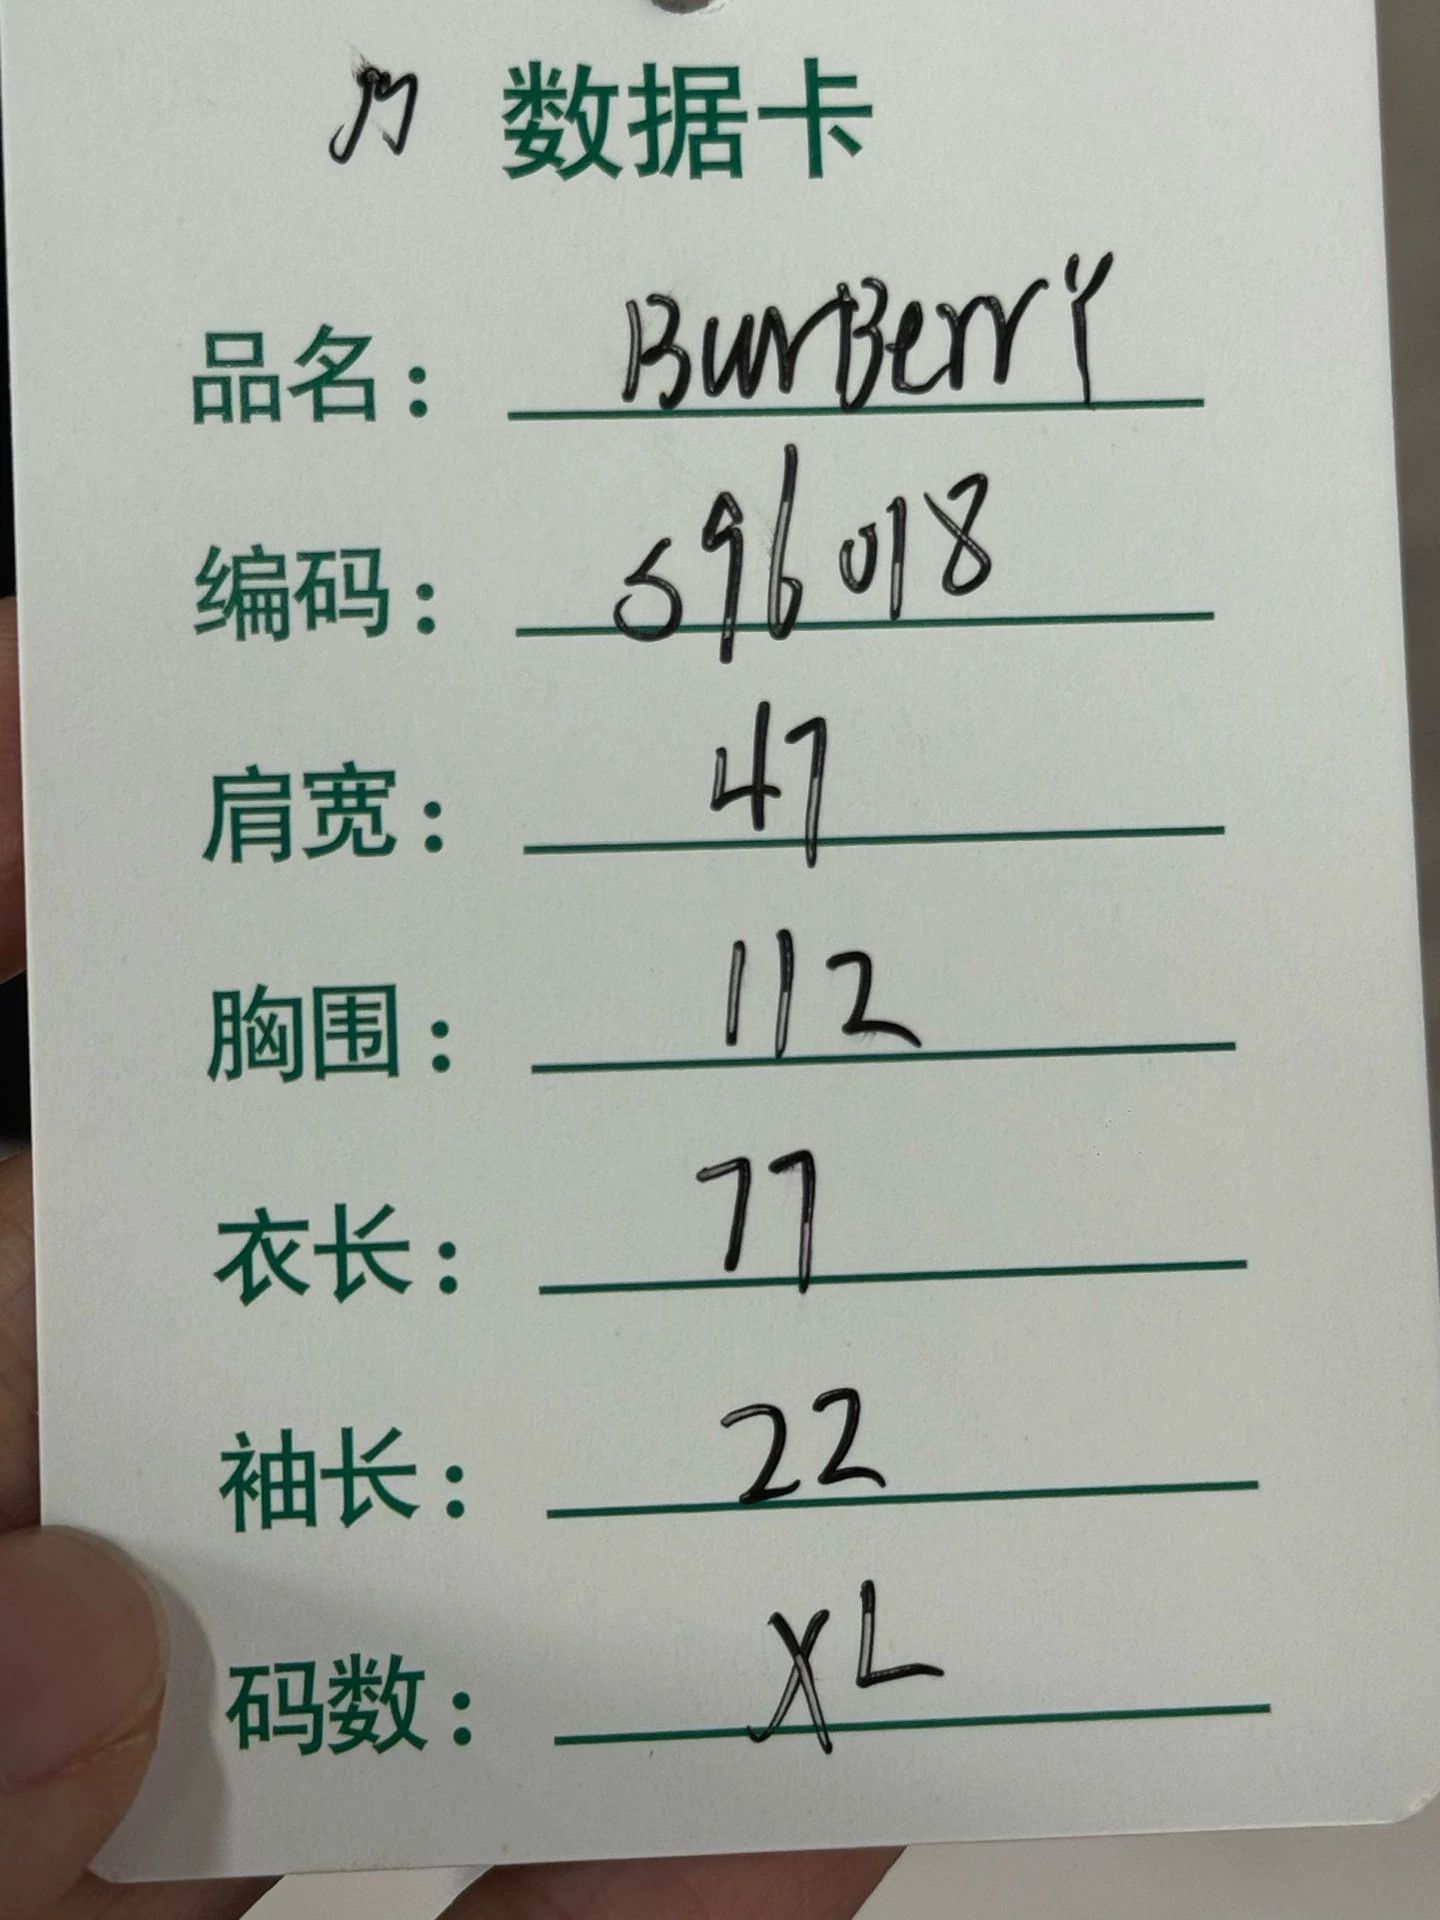 数据卡
品名: BurBerry
编码: S96018
肩宽: 47
胸围: 112
衣长: 77
袖长: 22
码数: XL